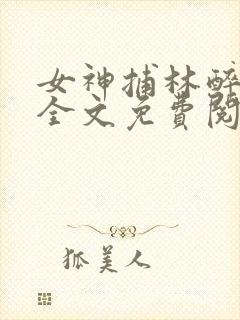 女神捕林醉
全文免費閱
狐美人